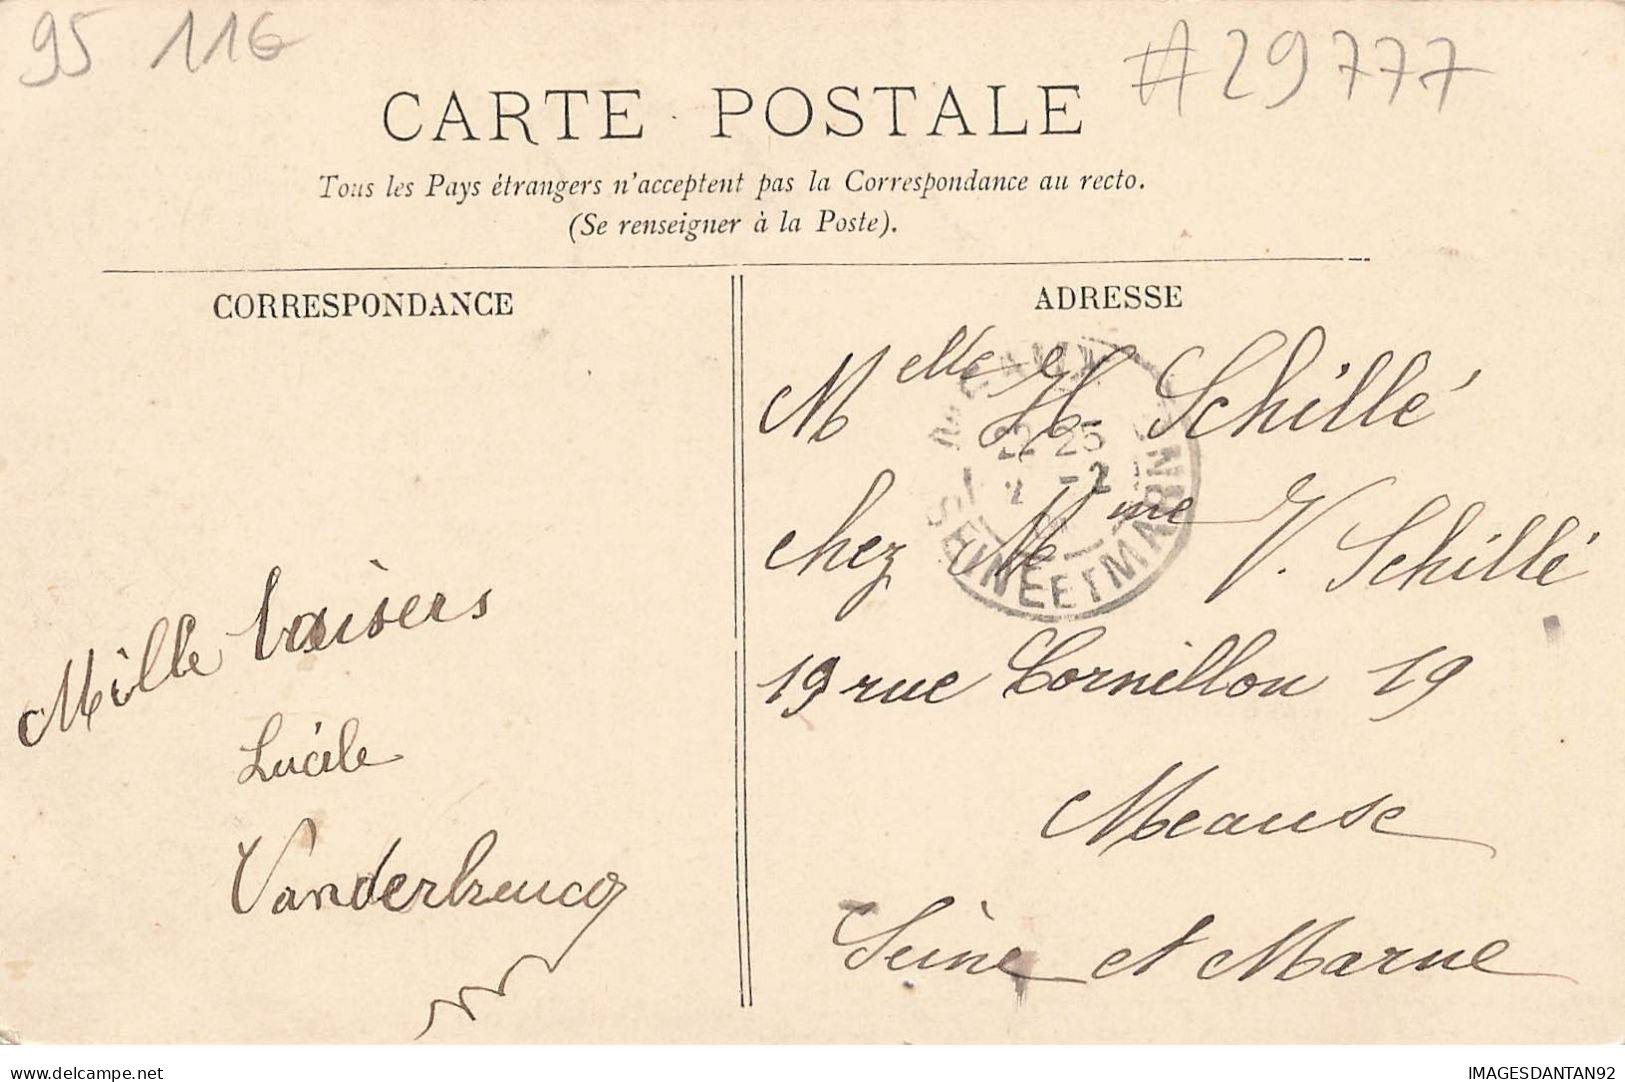 95 116
#29777
CARTE POSTALE
Tous les Pays étrangers n'acceptent pas la Correspondance au recto.
(Se renseigner à la Poste).
CORRESPONDANCE
Mille baisers
Lucile
ADRESSE
Melle H. Schillé
chez Mme V. Schillé
19 rue Cornillon 19
Meause
Seine et Marne
MEAUX
22 25
2 -2
SEINE ET MARNE
delcampe.net
IMAGESDANTAN92